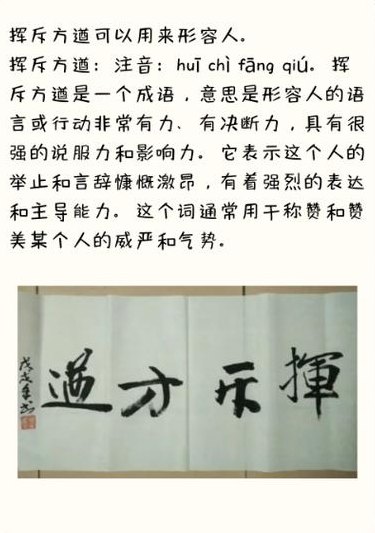 挥斥方遒可以用来形容人。
挥斥方遒：注音：huī chì fāng qiú。挥
斥方遒是一个成语，意思是形容人的语
言或行动非常有力、有决断力，具有很
强的说服力和影响力。它表示这个人的
举止和言辞慷慨激昂，有着强烈的表达
和主导能力。这个词通常用于称赞和赞
美某个人的威严和气势。
揮斥方遒